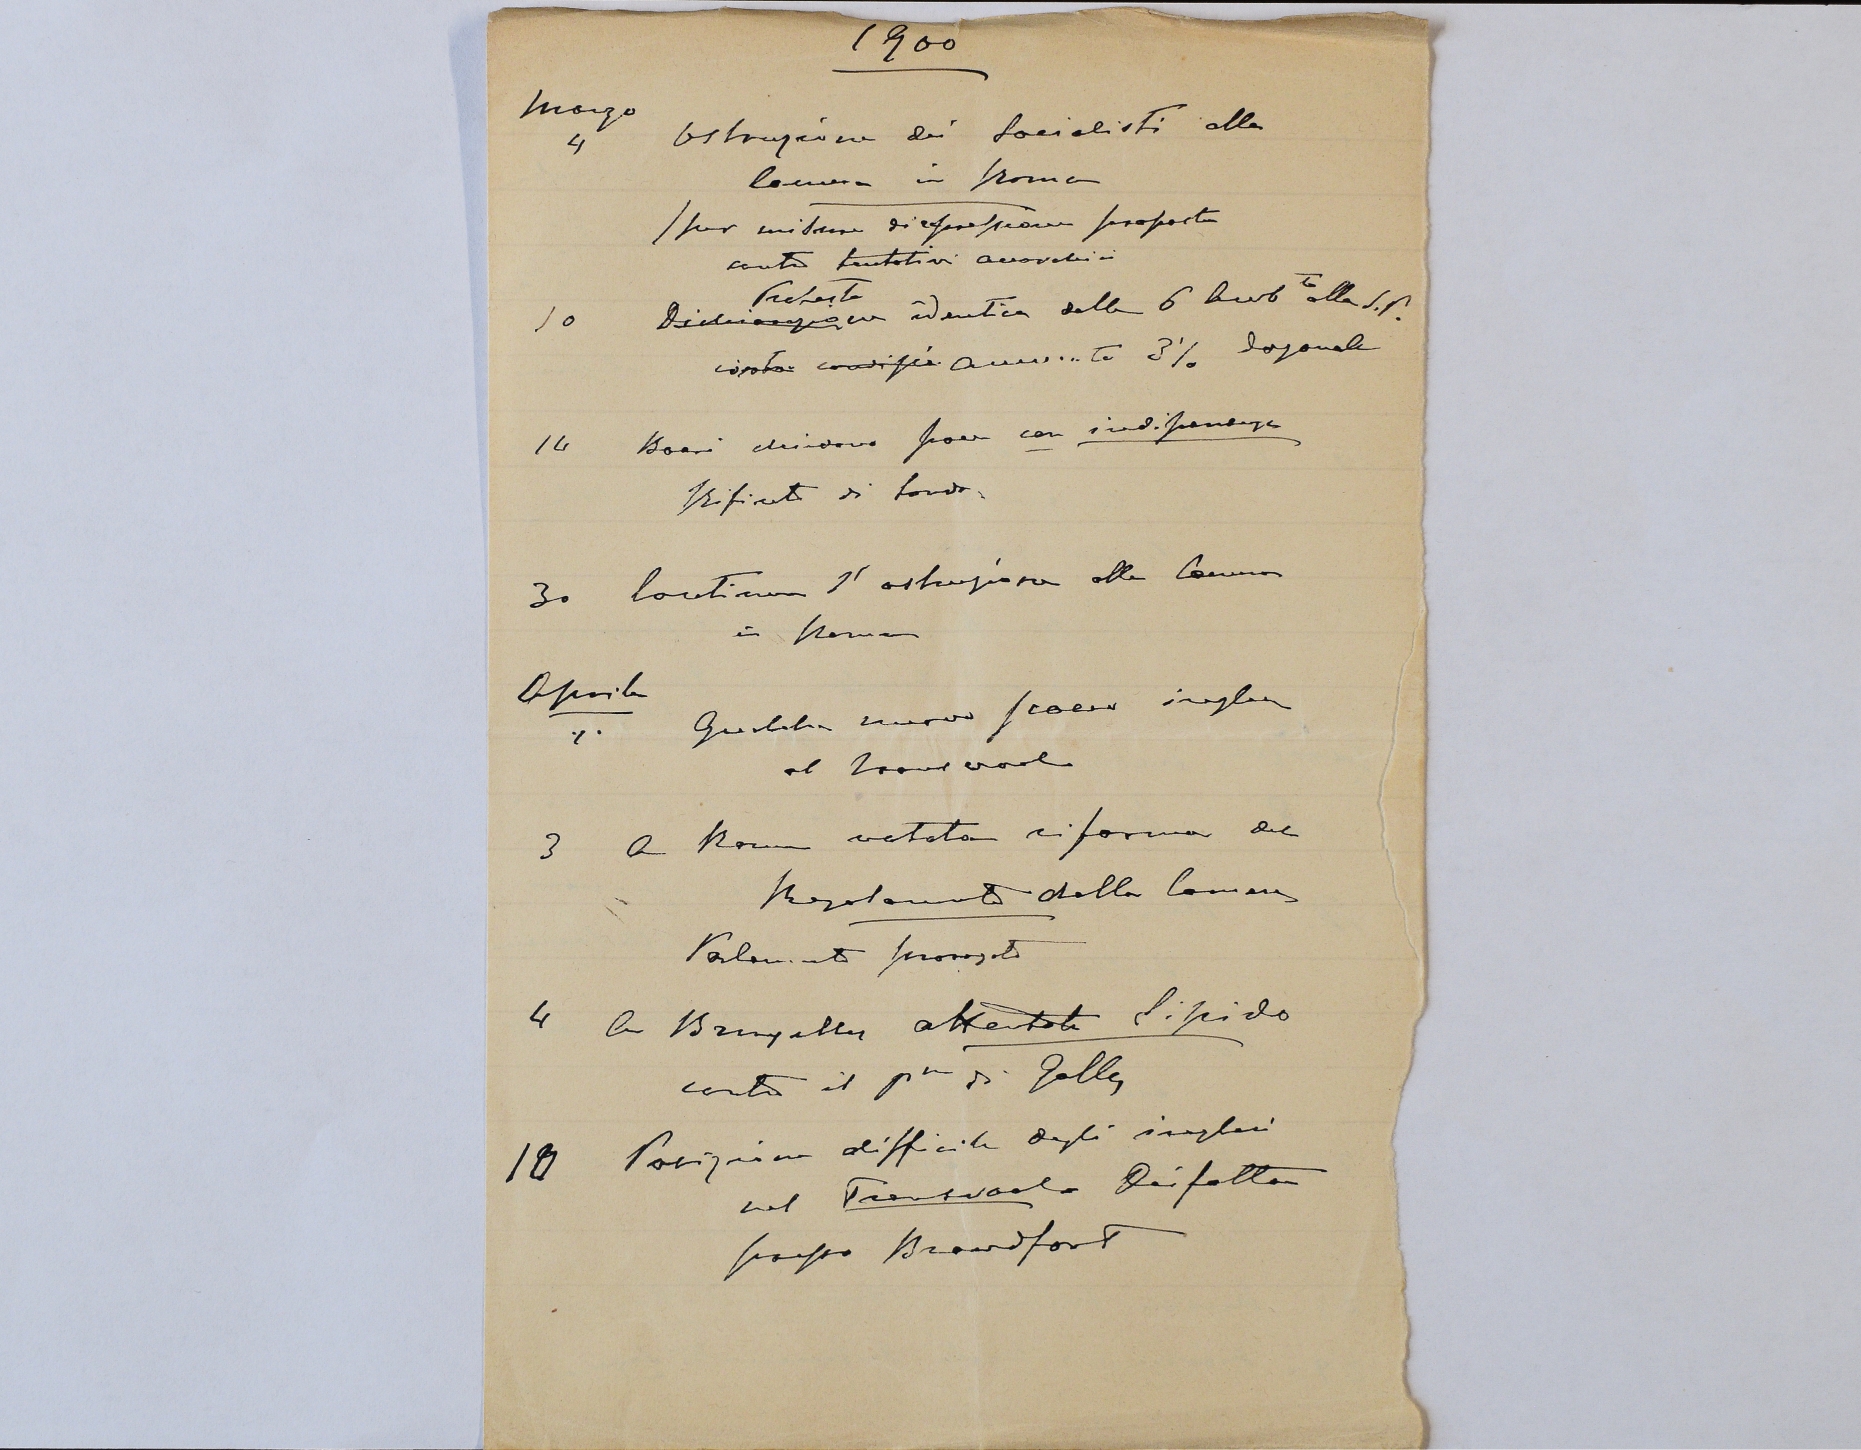 1900
Marzo
4 Ostruzione dei Socialisti alla
Camera in Roma
/per misure di repressione proposte
contro tentativi anarchici
Protesta
10 Dichiarazione identica delle 6 Amb.te alla S.P.
aumento 3% doganale
14 Boeri chiedono pace con indipendenza
Rifiuto di Londra
30 Continua l'ostruzione alla Camera
in Roma
Aprile
1º Qualche nuovo scacco inglese
al Transwaal
3 A Roma votata riforma del
Regolamento della Camera
Parlamento prorogato
4 A Bruxelles attentato Sipido
contro il Pre di Galles
10 Posizione difficile degli inglesi
nel Transvaal Disfatta
presso Brandfort